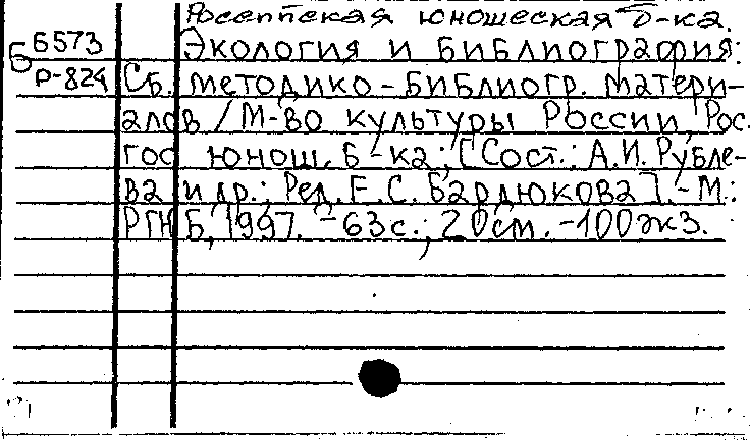 Российская юношеская б-ка.
Б 6573 Экология и библиография:
Р-824 Сб. методико-библиогр. матери-
алов / М-во культуры России, Рос.
гос юнош. б-ка; [Сост.: А.И. Рубле-
ва и др.; Ред. Е.С. Бардюкова]. - М.:
РГЮБ, 1997. - 63с.; 20см. - 100экз.